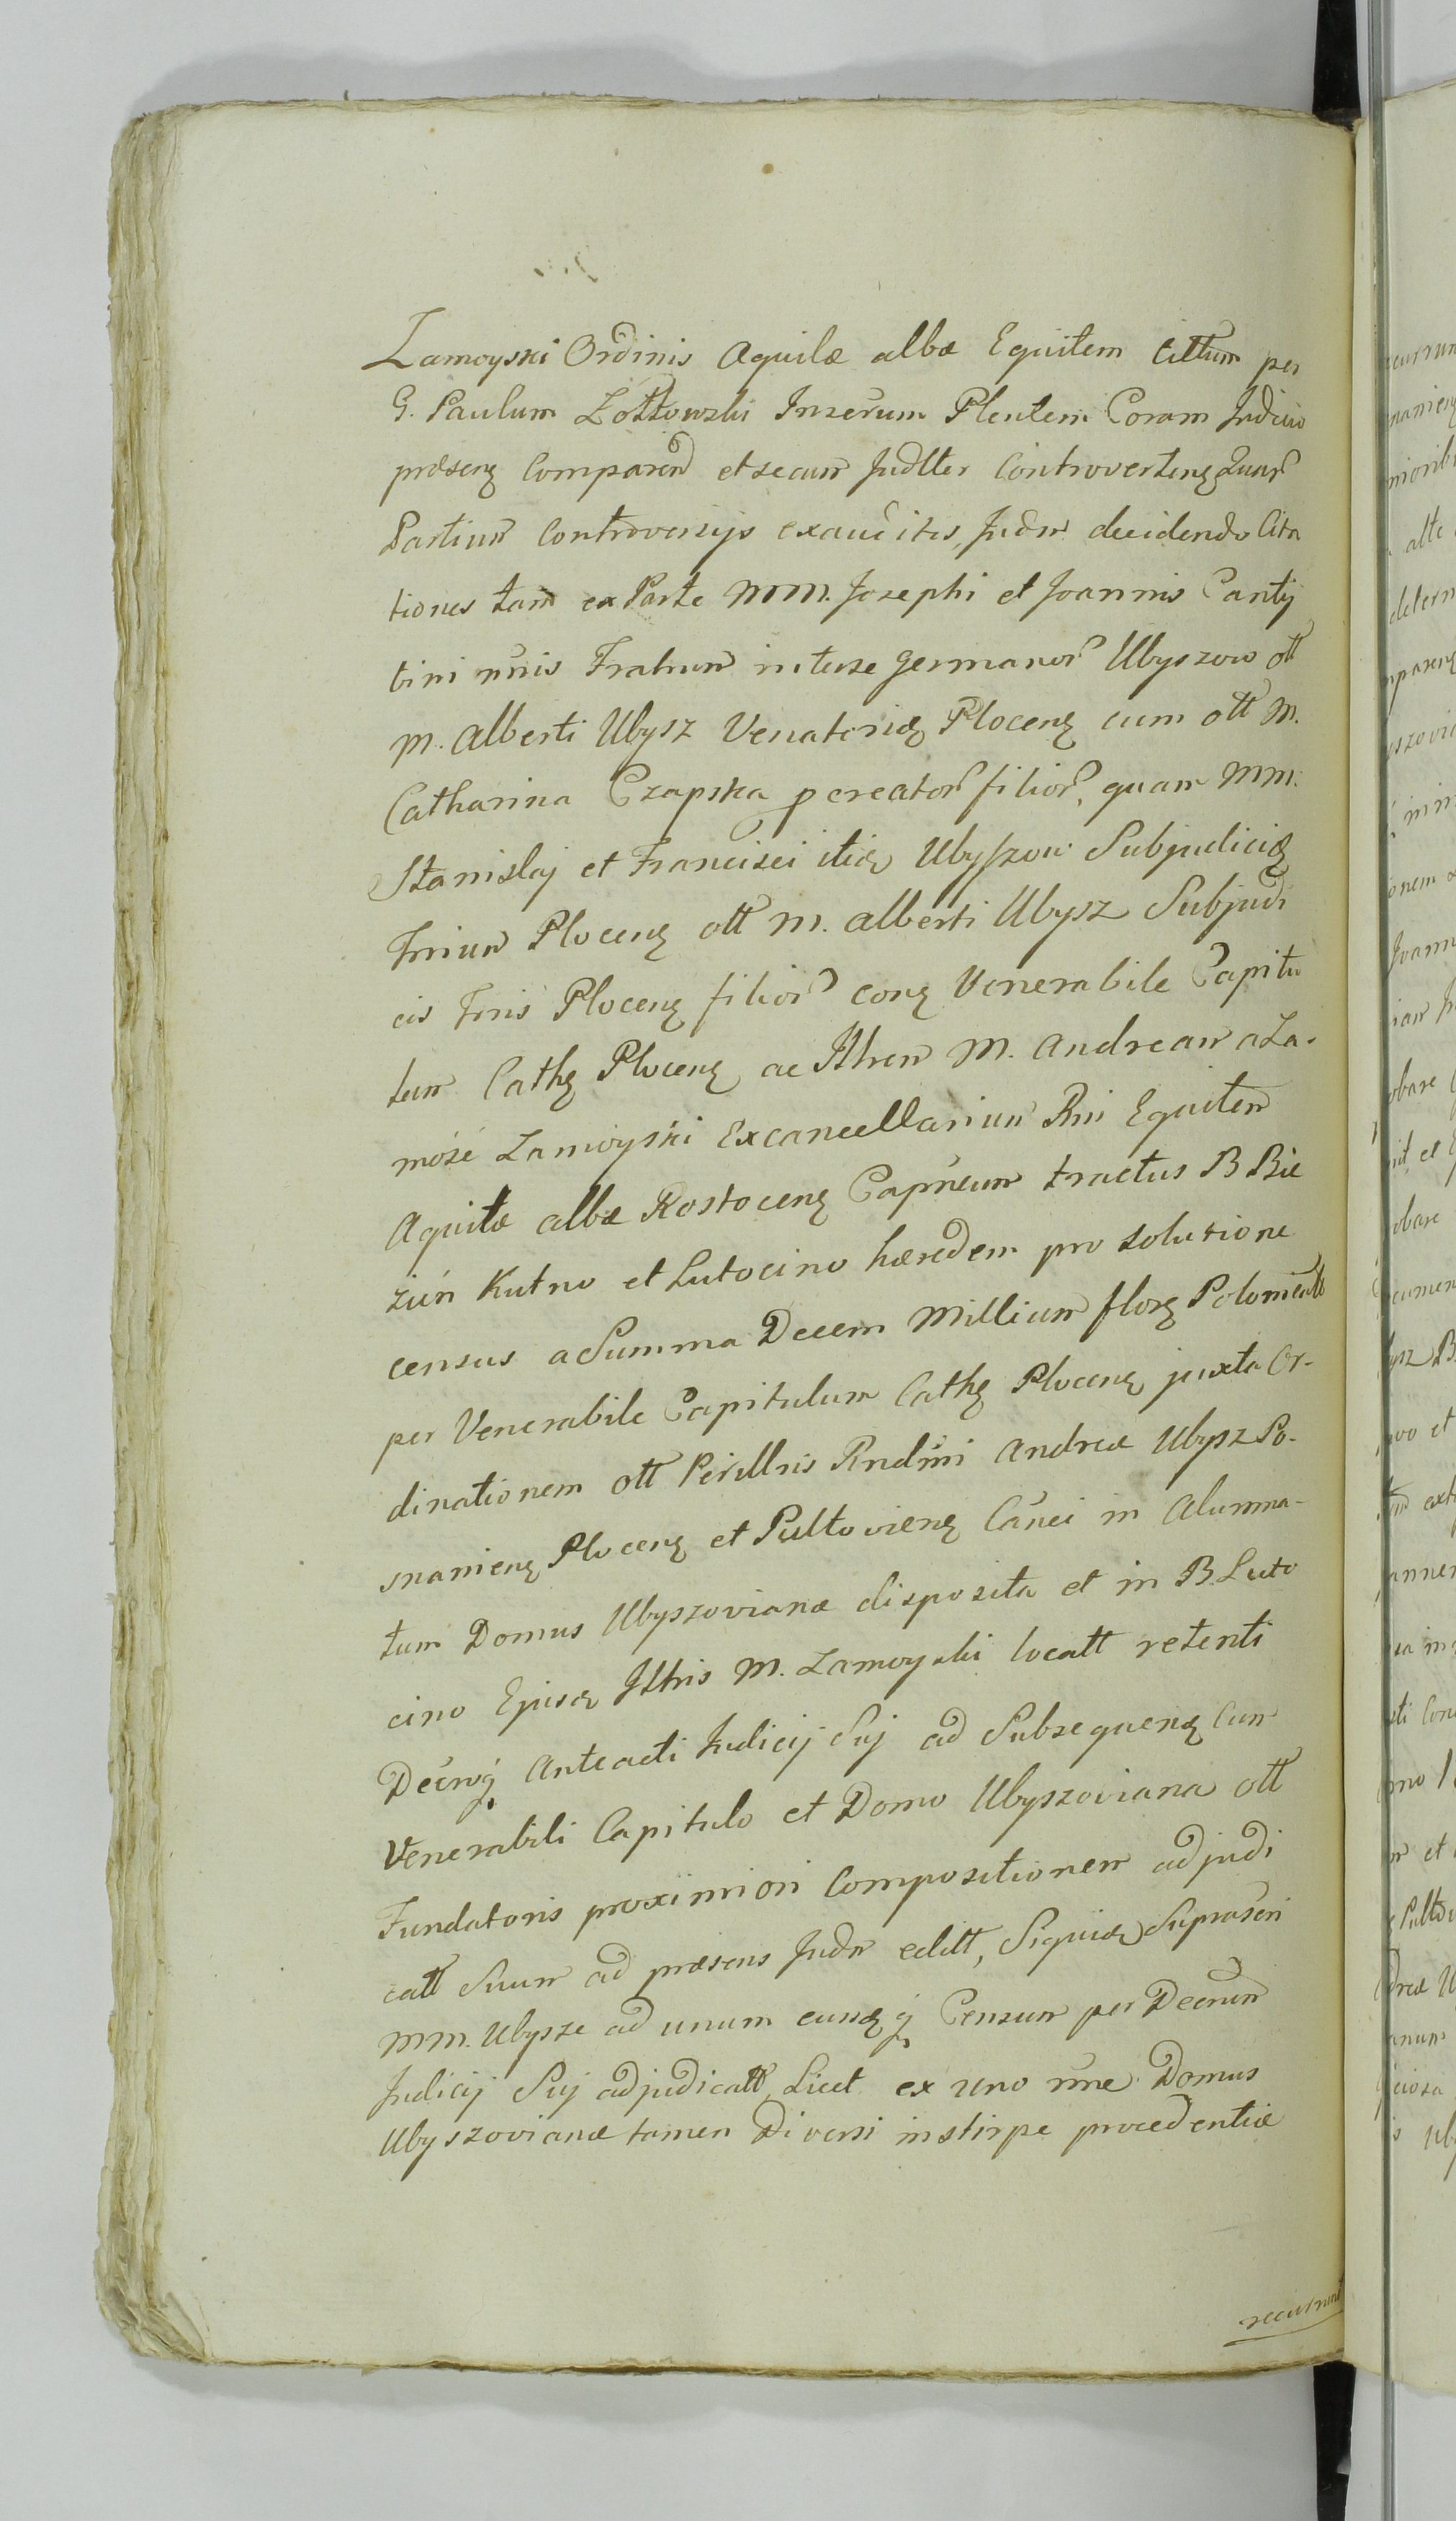 Zamoyski Ordinis Aquilæ albæ Equitem Cittum per
G. Paulum Zółtowski Inserum Plentem Coram Judicio
præsenȝ Comparend et secum Judtter Controvertenȝ Quar
Partium Controversijs exauditis, Judm decidendo Cita
tiones tam ex Parte MM. Josephi et Joannis Cantij
bini nris Fratrum interse Germanor Ubyszow ott
M. Alberti Ubysz Venatoridȝ Plocenȝ cum ott M.
Catharina Czapska pcreator filior, quam MM.
Stanislaj et Francisci itidȝ Ubyszow Subjudicidȝ
Trrium Plocenȝ ott M. Alberti Ubysz Subjudi
cis Trris Plocenȝ filior conȝ Venerabile Capitu
lum Cathȝ Plocenȝ ac Illrem M. Andream a Za-
mość Zamoyski Excancellarium Rni Equitem
Aquilæ albæ Rostocenȝ Capneum tractus B Bie
żuń Kutno et Lutocino hæredem pro solutione
census a Summa Decem Millium florȝ Polonicall
per Venerabile Capitulum Cathȝ Plocenȝ juxta Or-
dinationem ott Perillris Rndmi Andreæ Ubysz Po-
snanienȝ Plocenȝ et Pultovienȝ Canci in Alumna-
tum Domus Ubyszovianæ disposita et in B. Luto
cino Ejusdȝ Illris M. Zamoyski locatt retenti
Decroqȝ Anteacti Judicij Suj ad Subsequenȝ Cum
Venerabili Capitulo et Domo Ubyszoviana ott
Fundatoris proximiori Compositionem adjudi
catt Suum ad præsens Judm edidtt, Siquidȝ Suprascri
MM. Ubysze ad unum eundȝqȝ Censum per Decrum
Judicij Suj adjudicatt, Licet ex uno nne Domus
Ubyszovianæ tamen Diversi in stirpe procedentiæ
recurrunt